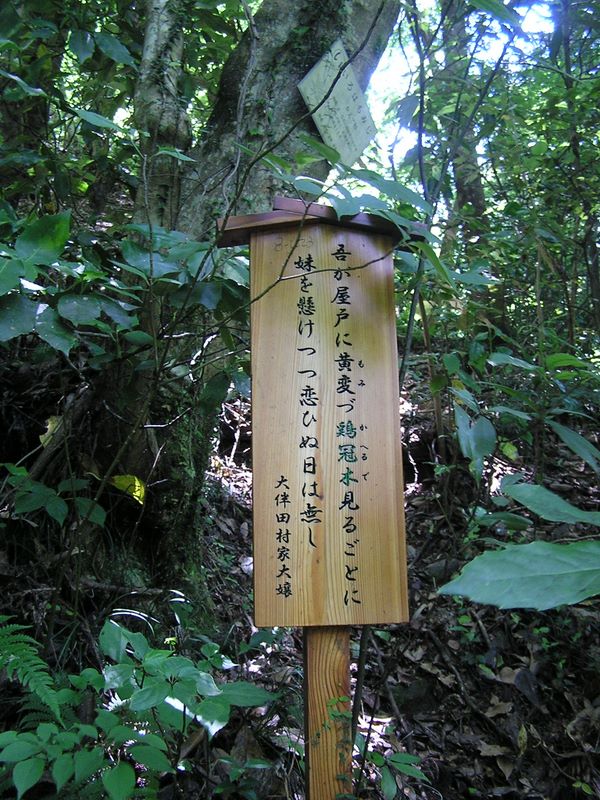 吾が屋戸に黄変づ鶏冠木見るごとに
もみ
かへるで
妹を懸けつつ恋ひぬ日は無し
大伴田村家大嬢